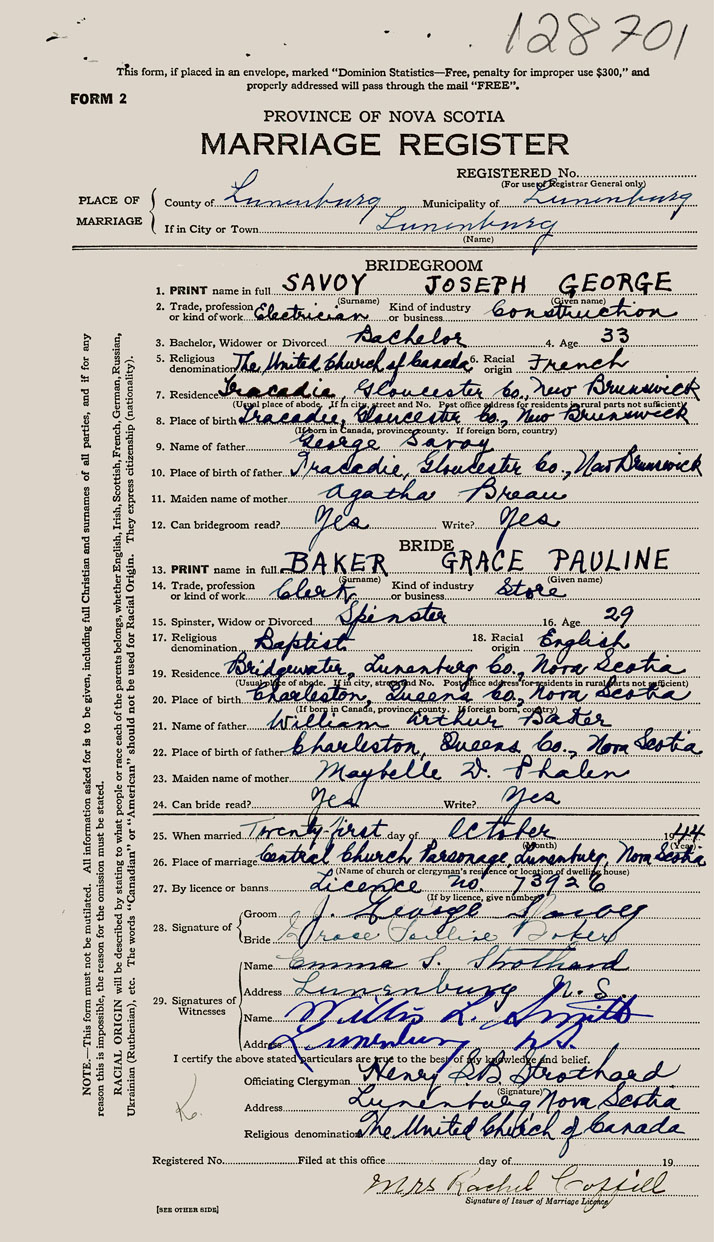 128701
This form, if placed in an envelope, marked "Dominion Statistics—Free, penalty for improper use $300," and
properly addressed will pass through the mail "FREE".
FORM 2
PROVINCE OF NOVA SCOTIA
MARRIAGE REGISTER
REGISTERED No.
(For use of Registrar General only)
PLACE OF MARRIAGE
County of Lunenburg Municipality of Lunenburg
If in City or Town Lunenburg
(Name)
BRIDEGROOM
1. PRINT name in full SAVOY JOSEPH GEORGE
(Surname) (Given name)
2. Trade, profession or kind of work Electrician Kind of industry or business Construction
3. Bachelor, Widower or Divorced Bachelor 4. Age 33
5. Religious denomination The United Church of Canada 6. Racial origin French
7. Residence Tracadie, Gloucester Co., New Brunswick
(Usual place of abode. If in city, street and No. Post office address for residents in rural parts not sufficient)
8. Place of birth Tracadie, Gloucester Co., New Brunswick
(If born in Canada, province, county. If foreign born, country)
9. Name of father George Savoy
10. Place of birth of father Tracadie, Gloucester Co., New Brunswick
11. Maiden name of mother Agatha Breau
12. Can bridegroom read? Yes Write? Yes
BRIDE
13. PRINT name in full BAKER GRACE PAULINE
(Surname) (Given name)
14. Trade, profession or kind of work Clerk Kind of industry or business Store
15. Spinster, Widow or Divorced Spinster 16. Age 29
17. Religious denomination Baptist 18. Racial origin English
19. Residence Bridgewater, Lunenburg Co., Nova Scotia
(Usual place of abode. If in city, street and No. Post office address for residents in rural parts not sufficient)
20. Place of birth Charleston, Queens Co., Nova Scotia
(If born in Canada, province, county. If foreign born, country)
21. Name of father William Arthur Baker
22. Place of birth of father Charleston, Queens Co., Nova Scotia
23. Maiden name of mother Maybelle D. Phalen
24. Can bride read? Yes Write? Yes
25. When married Twenty-first day of October 1944
(Month) (Year)
26. Place of marriage Central Church Parsonage, Lunenburg, Nova Scotia
(Name of church or clergyman's residence or location of dwelling house)
27. By licence or banns Licence no. 73926
(If by licence, give number)
28. Signature of
Groom J. George Savoy
Bride Grace Pauline Baker
29. Signatures of Witnesses
Name Emma S. Strothard
Address Lunenburg N.S.
Name Willis L. Smith
Address Lunenburg N.S.
I certify the above stated particulars are true to the best of my knowledge and belief.
Officiating Clergyman Henry S.B. Strothard
(Signature)
Address Lunenburg Nova Scotia
Religious denomination The United Church of Canada
Registered No. Filed at this office day of 19
Mrs Rachel Coffill
Signature of Issuer of Marriage Licence
[SEE OTHER SIDE]
NOTE.—This form must not be mutilated. All information asked for is to be given, including full Christian and surnames of all parties, and if for any
reason this is impossible, the reason for the omission must be stated.
RACIAL ORIGIN will be described by stating to what people or race each of the parents belongs, whether English, Irish, Scottish, French, German, Russian,
Ukrainian (Ruthenian), etc. The words "Canadian" or "American" should not be used for Racial Origin. They express citizenship (nationality).